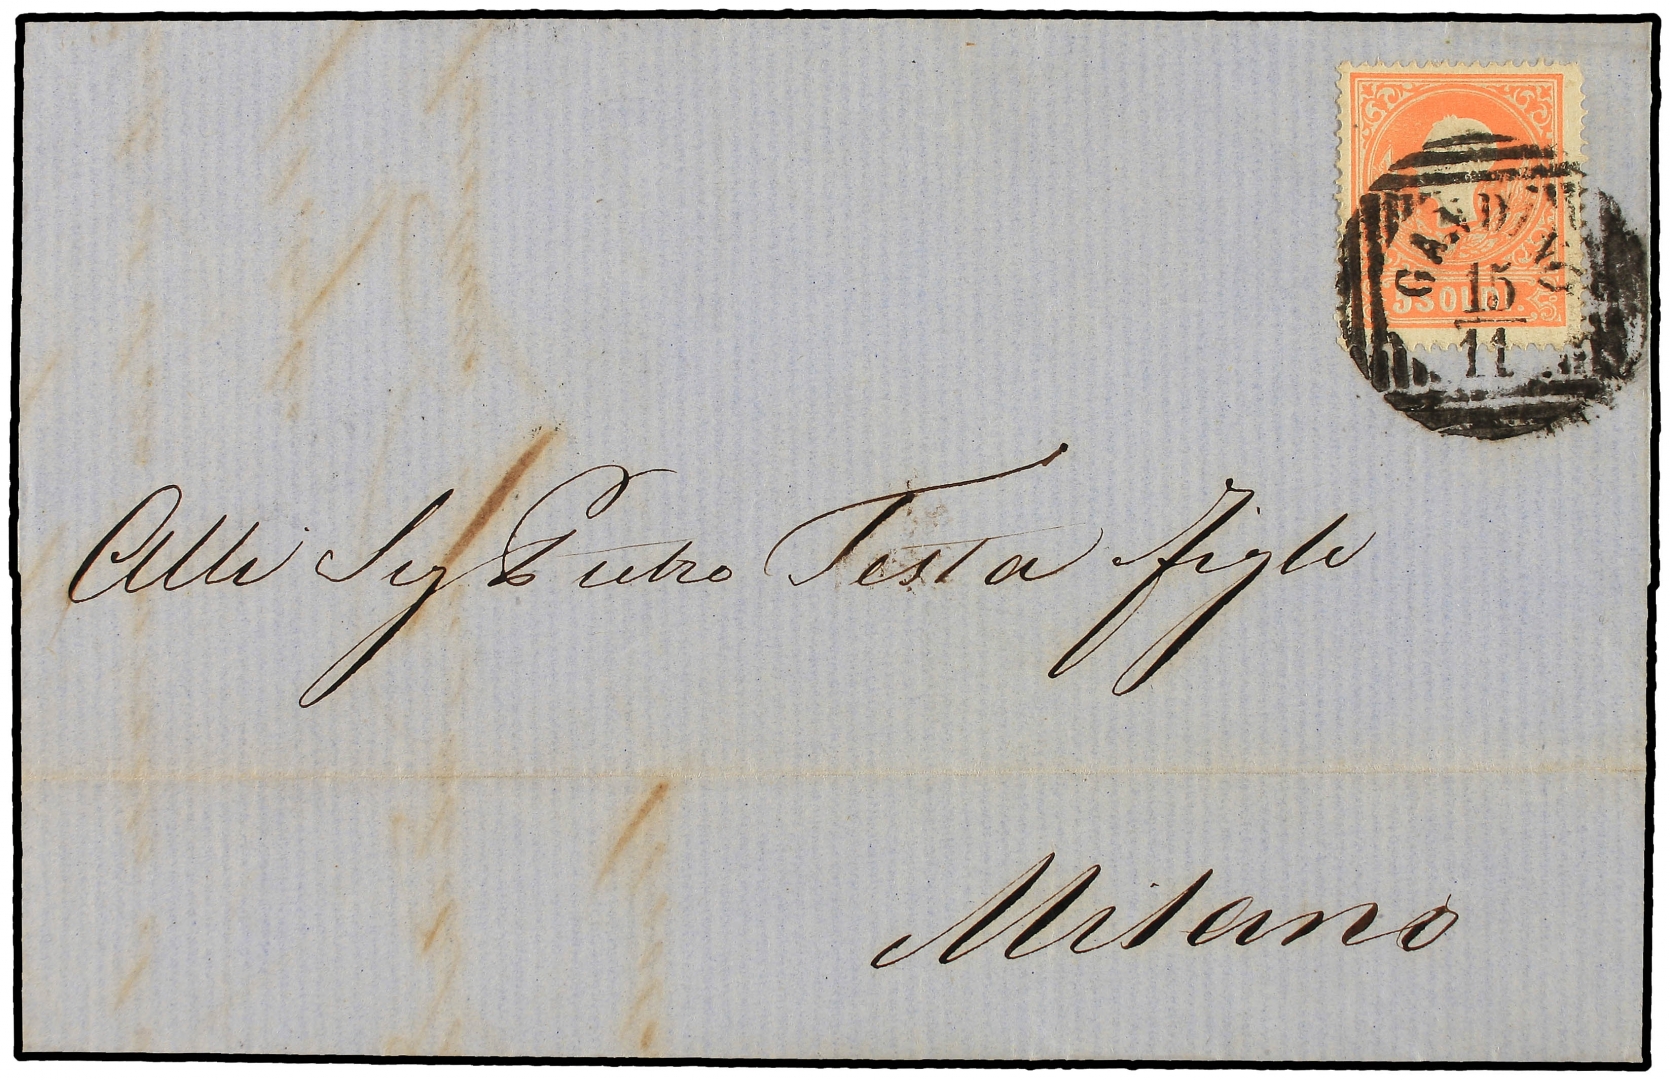 GANDINO
15
11
5 SOLDI.
Alli Sig Pietro Testa figli
Milano